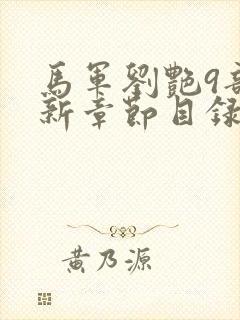 馬軍劉艷9部
新章節目錄
黃乃源